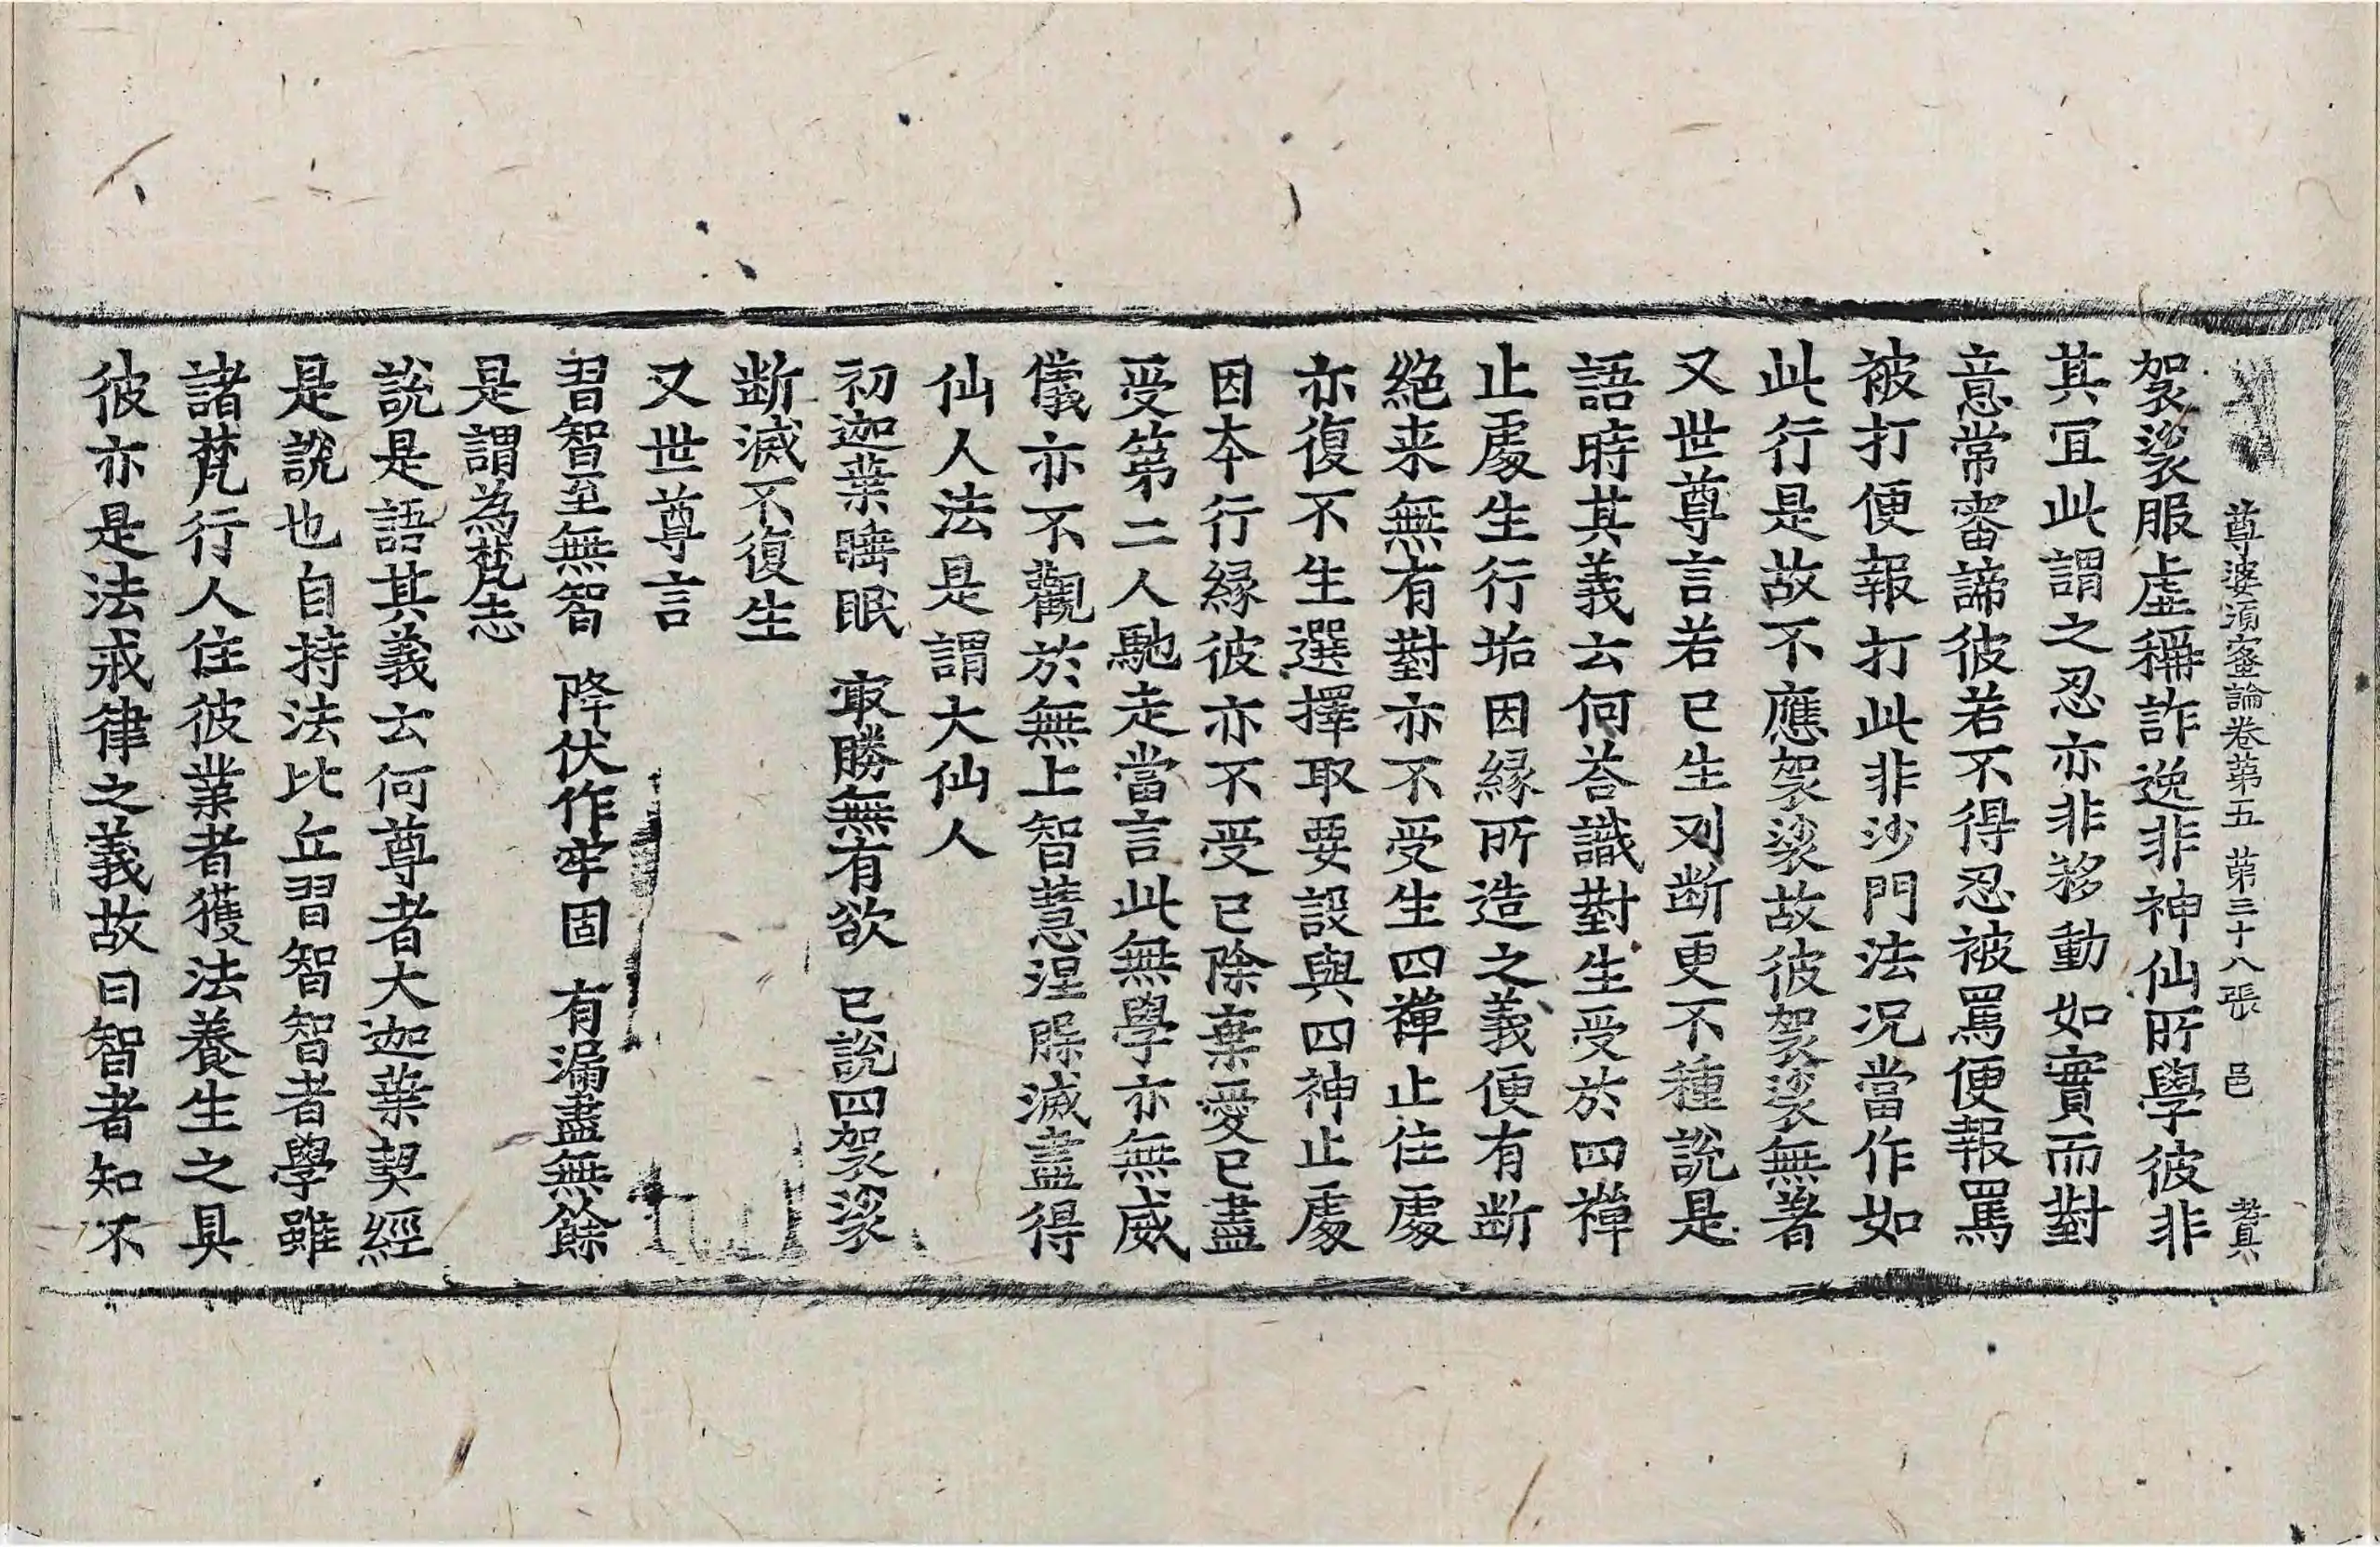 尊婆須蜜論卷第五 第三十八張 邑
袈裟服虛稱詐逸非神仙所學彼非
其冝此謂之忍亦非移動如實而對
意常審諦彼若不得忍被罵便報罵
被打便報打此非沙門法況當作如
此行是故不應袈裟故彼袈裟無著
又世尊言若已生列断更不種說是
語時其義云何荅識對生受於四禪
止處生行垢因縁所造之義便有断
絕来無有對亦不受生四禪止住處
亦復不生選擇取要設與四神止處
因本行縁彼亦不受已除棄愛已盡
受第二人馳走當言此無學亦無威
儀亦不觀於無上智慧涅縣滅盡得
仙人法是謂大仙人
初迦葉睡眠 冣勝無有欲 已說四袈裟
断滅不復生
又世尊言
習智至無智 降伏作牢固 有漏盡無餘
是謂為梵志
說是語其義云何尊者大迦葉契經
是說也自持法比丘習智智者學雖
諸梵行人住彼業者獲法養生之具
彼亦是法戒律之義故曰智者知不